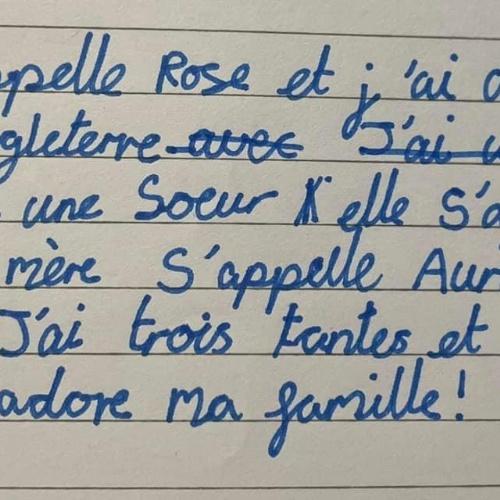 ppelle Rose et j'ai
gleterre avec J'ai
une Soeur elle s'a
mère S'appelle Aur
J'ai trois tantes et
adore ma famille!